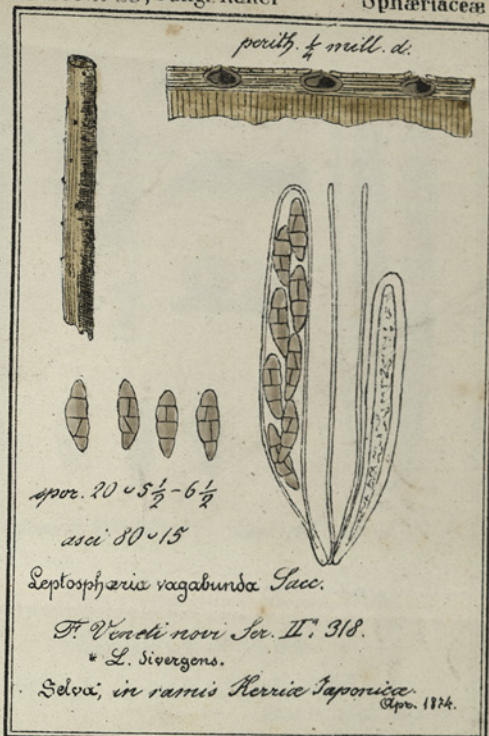 Sphæriaceæ
perith. ¼ mill. d.
spor. 20 ᴗ 5½ - 6½
asci 80 ᴗ 15
Leptosphæria vagabunda Sacc.
F. Veneti novi Ser. IIª: 318.
* L. divergens.
Selva; in ramis Kerriæ Japonicæ.
Apr. 1874.